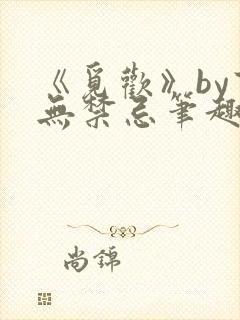 《覓歡》by
無禁忌筆趣
尚錦